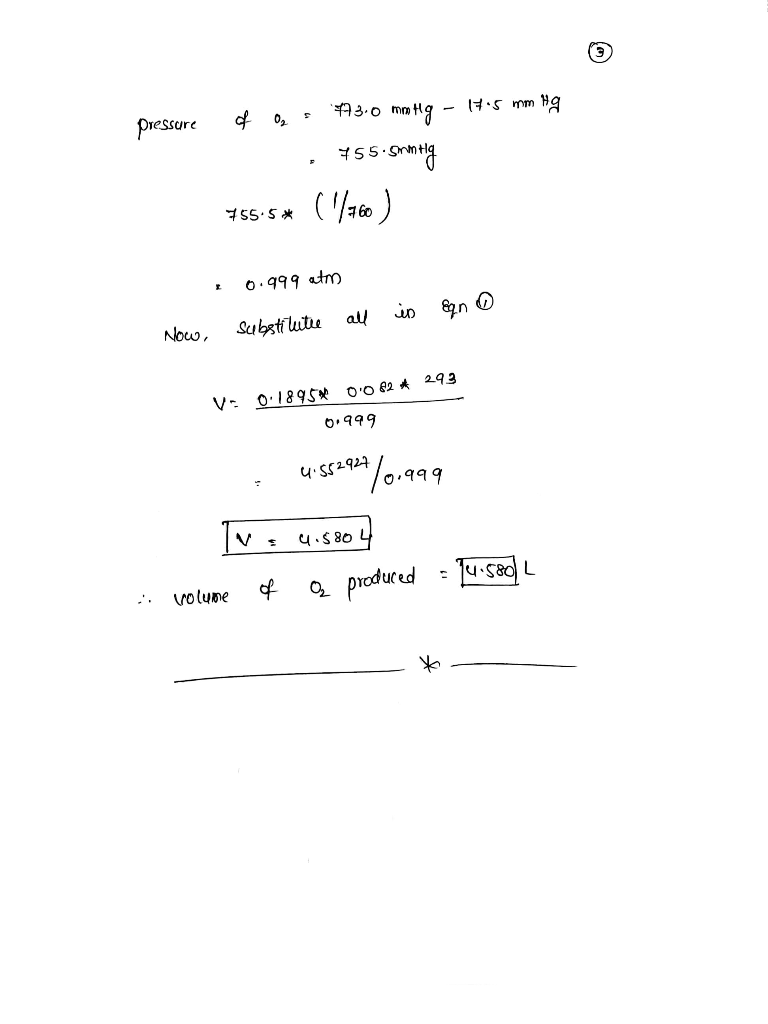 ③
pressure of O₂ = 773.0 mmHg - 17.5 mm Hg
= 755.5mmHg
755.5 * (1/760)
= 0.999 atm
Now, Substitutee all in eqn ①
V = 0.1895* 0.082 * 293
0.999
= 4.552927/0.999
V = 4.580 L
∴ volume of O₂ produced = 4.580 L
*